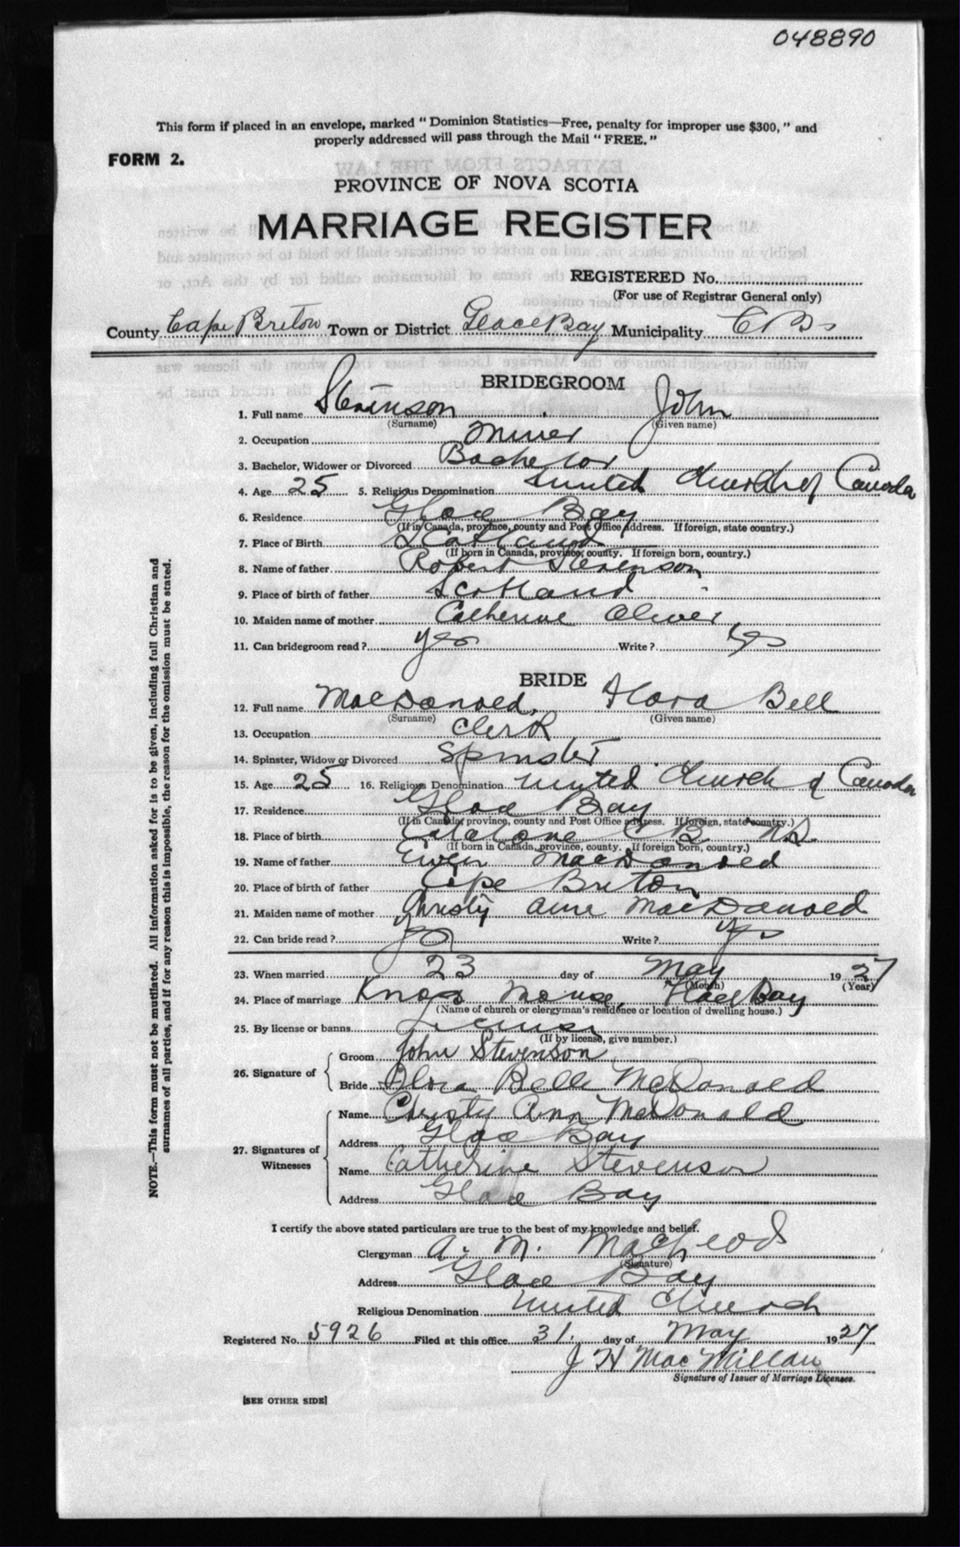 048890
This form if placed in an envelope, marked "Dominion Statistics—Free, penalty for improper use $300," and
properly addressed will pass through the Mail "FREE."
FORM 2.
PROVINCE OF NOVA SCOTIA
MARRIAGE REGISTER
REGISTERED No.
(For use of Registrar General only)
County Cape Breton Town or District Glace Bay Municipality C B
BRIDEGROOM
1. Full name Stevenson John
(Surname) (Given name)
2. Occupation Miner
3. Bachelor, Widower or Divorced Bachelor
4. Age 25 5. Religious Denomination United Church of Canada
6. Residence Glace Bay
(If in Canada, province, county and Post Office Address. If foreign, state country.)
7. Place of Birth Scotland
(If born in Canada, province, county. If foreign born, country.)
8. Name of father Robert Stevenson
9. Place of birth of father Scotland
10. Maiden name of mother Catherine Oliver
11. Can bridegroom read? yes Write? yes
BRIDE
12. Full name MacDonald, Flora Bell
(Surname) (Given name)
13. Occupation Clerk
14. Spinster, Widow or Divorced Spinster
15. Age 25 16. Religious Denomination United Church of Canada
17. Residence Glace Bay
(If in Canada, province, county and Post Office address. If foreign, state country.)
18. Place of birth Catalone C B NS
(If born in Canada, province, county. If foreign born, country.)
19. Name of father Ewen MacDonald
20. Place of birth of father Cape Breton
21. Maiden name of mother Christy Ann MacDonald
22. Can bride read? yes Write? yes
23. When married 23 day of May 1927
(Month) (Year)
24. Place of marriage Knox Manse, Glace Bay
(Name of church or clergyman's residence or location of dwelling house.)
25. By license or banns License
(If by license, give number.)
26. Signature of
Groom John Stevenson
Bride Flora Belle McDonald
27. Signatures of Witnesses
Name Christy Ann McDonald
Address Glace Bay
Name Catherine Stevenson
Address Glace Bay
I certify the above stated particulars are true to the best of my knowledge and belief.
Clergyman A. M. MacLeod
(Signature)
Address Glace Bay
Religious Denomination United Church
Registered No. 5926 Filed at this office 31. day of May 1927
J H MacMillan
Signature of Issuer of Marriage Licenses.
[SEE OTHER SIDE]
NOTE.—This form must not be mutilated. All information asked for is to be given, including full Christian and
surnames of all parties, and if for any reason this is impossible, the reason for the omission must be stated.